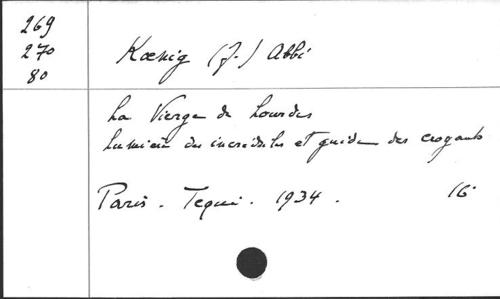 269
270
80
Kœnig (J.) Abbé
La Vierge de Lourdes
lumière des incrédules et guide des croyants
Paris - Tequi - 1934.
16°